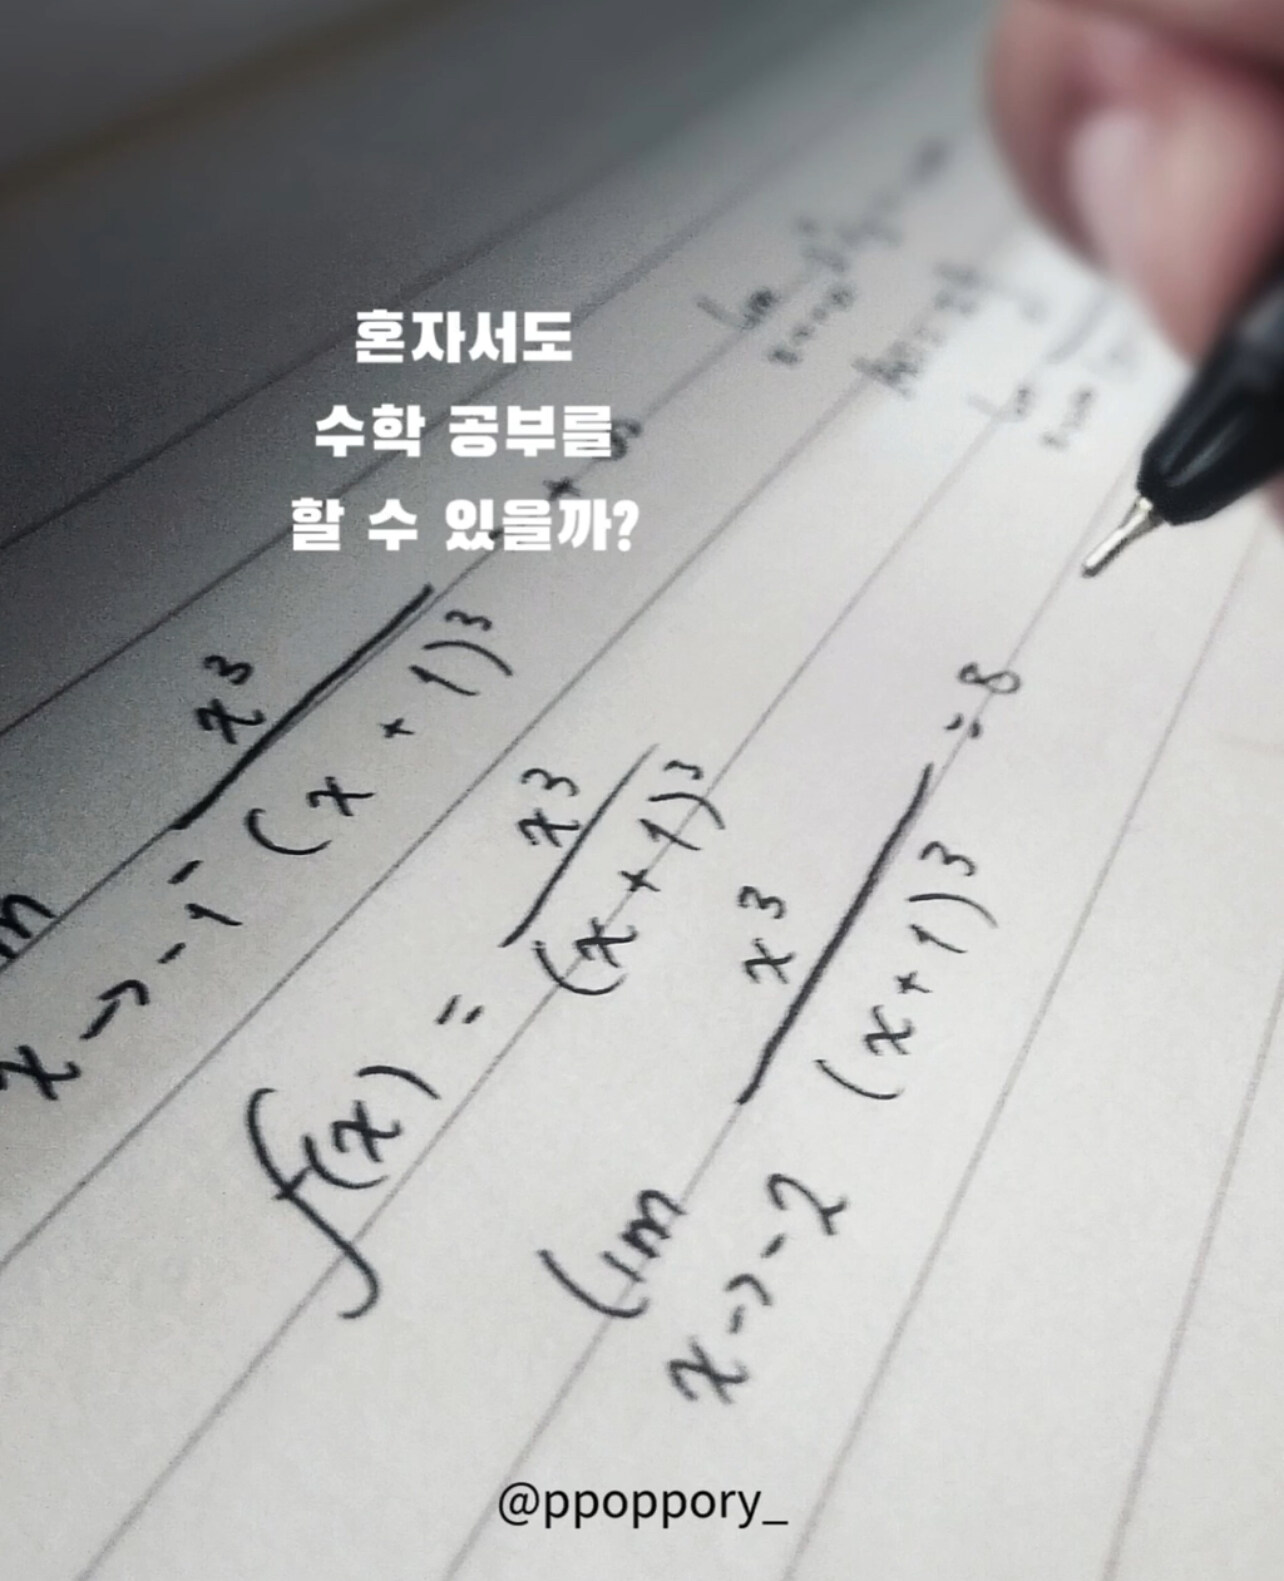 혼자서도
수학 공부를
할 수 있을까?
x³
x → -1⁻ (x + 1)³
f(x) = x³ / (x + 1)³
lim x³ / (x + 1)³ = 8
x → -2
@ppoppory_